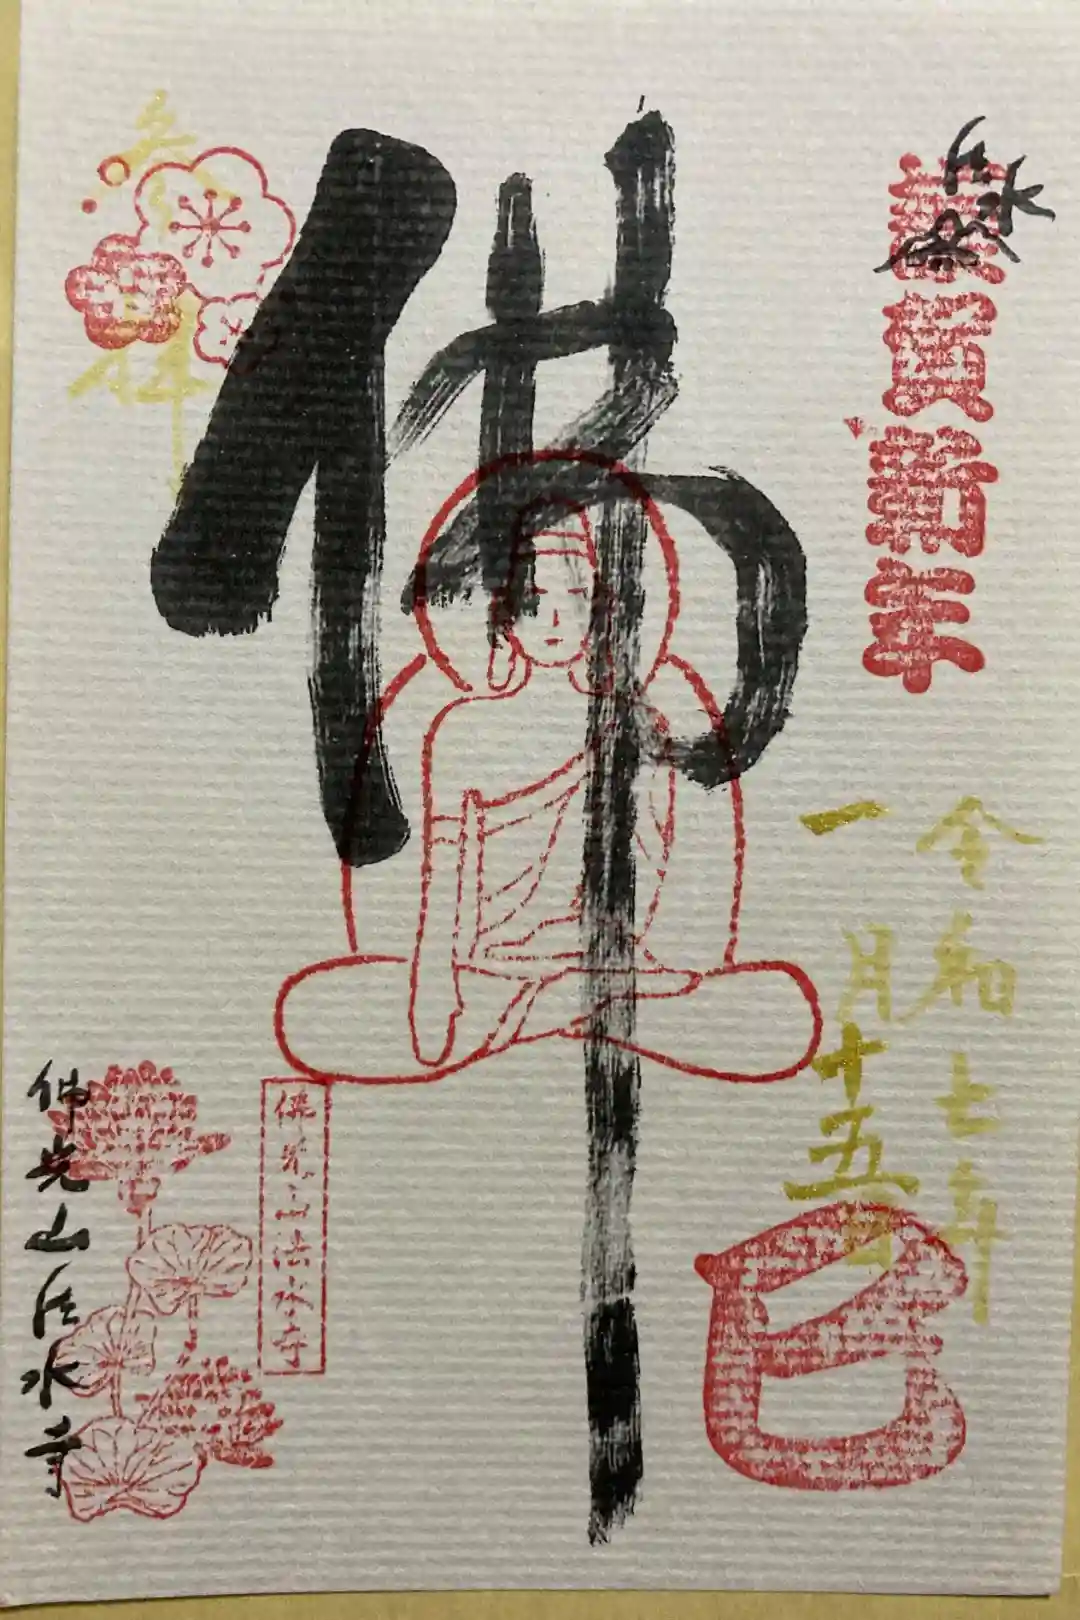 謹賀新年
令和七年
一月十五日
巳
佛
佛光山法水寺
佛光山法水寺